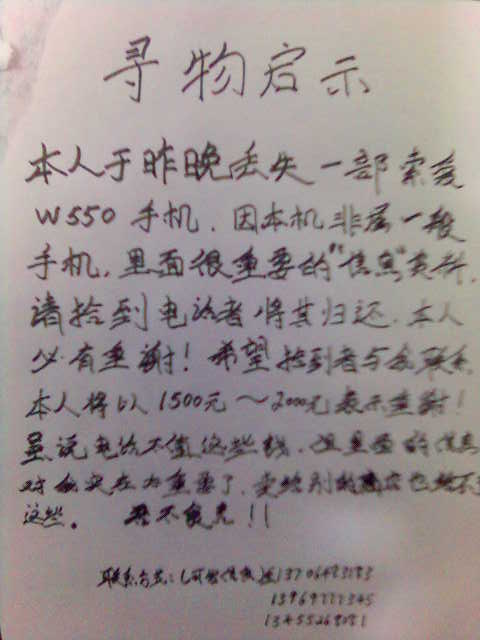 寻物启示
本人于昨晚丢失一部索爱
W550手机.因本机非属一般
手机,里面很重要的"信息"资料.
请拾到电话者将其归还.本人
必有重谢!希望拾到者与我联系
本人将以1500元~2000元表示重谢!
虽说电话不值这些钱.但里面的信息
对我实在太重要了.卖给别的商店也给不了
这些。
联系方式: